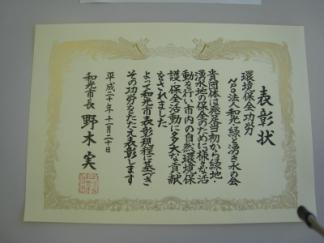 表彰状
環境保全功労
NPO法人和光・緑と湧き水の会
貴団体は発足当初から緑地・
湧水地の保全のために様々な活
動を行い市内の自然環境保
護・保全活動に多大な貢献
をされました
よって和光市表彰規程に基づき
その功労をたたえ表彰します
平成二十年十一月二十日
和光市長 野木実